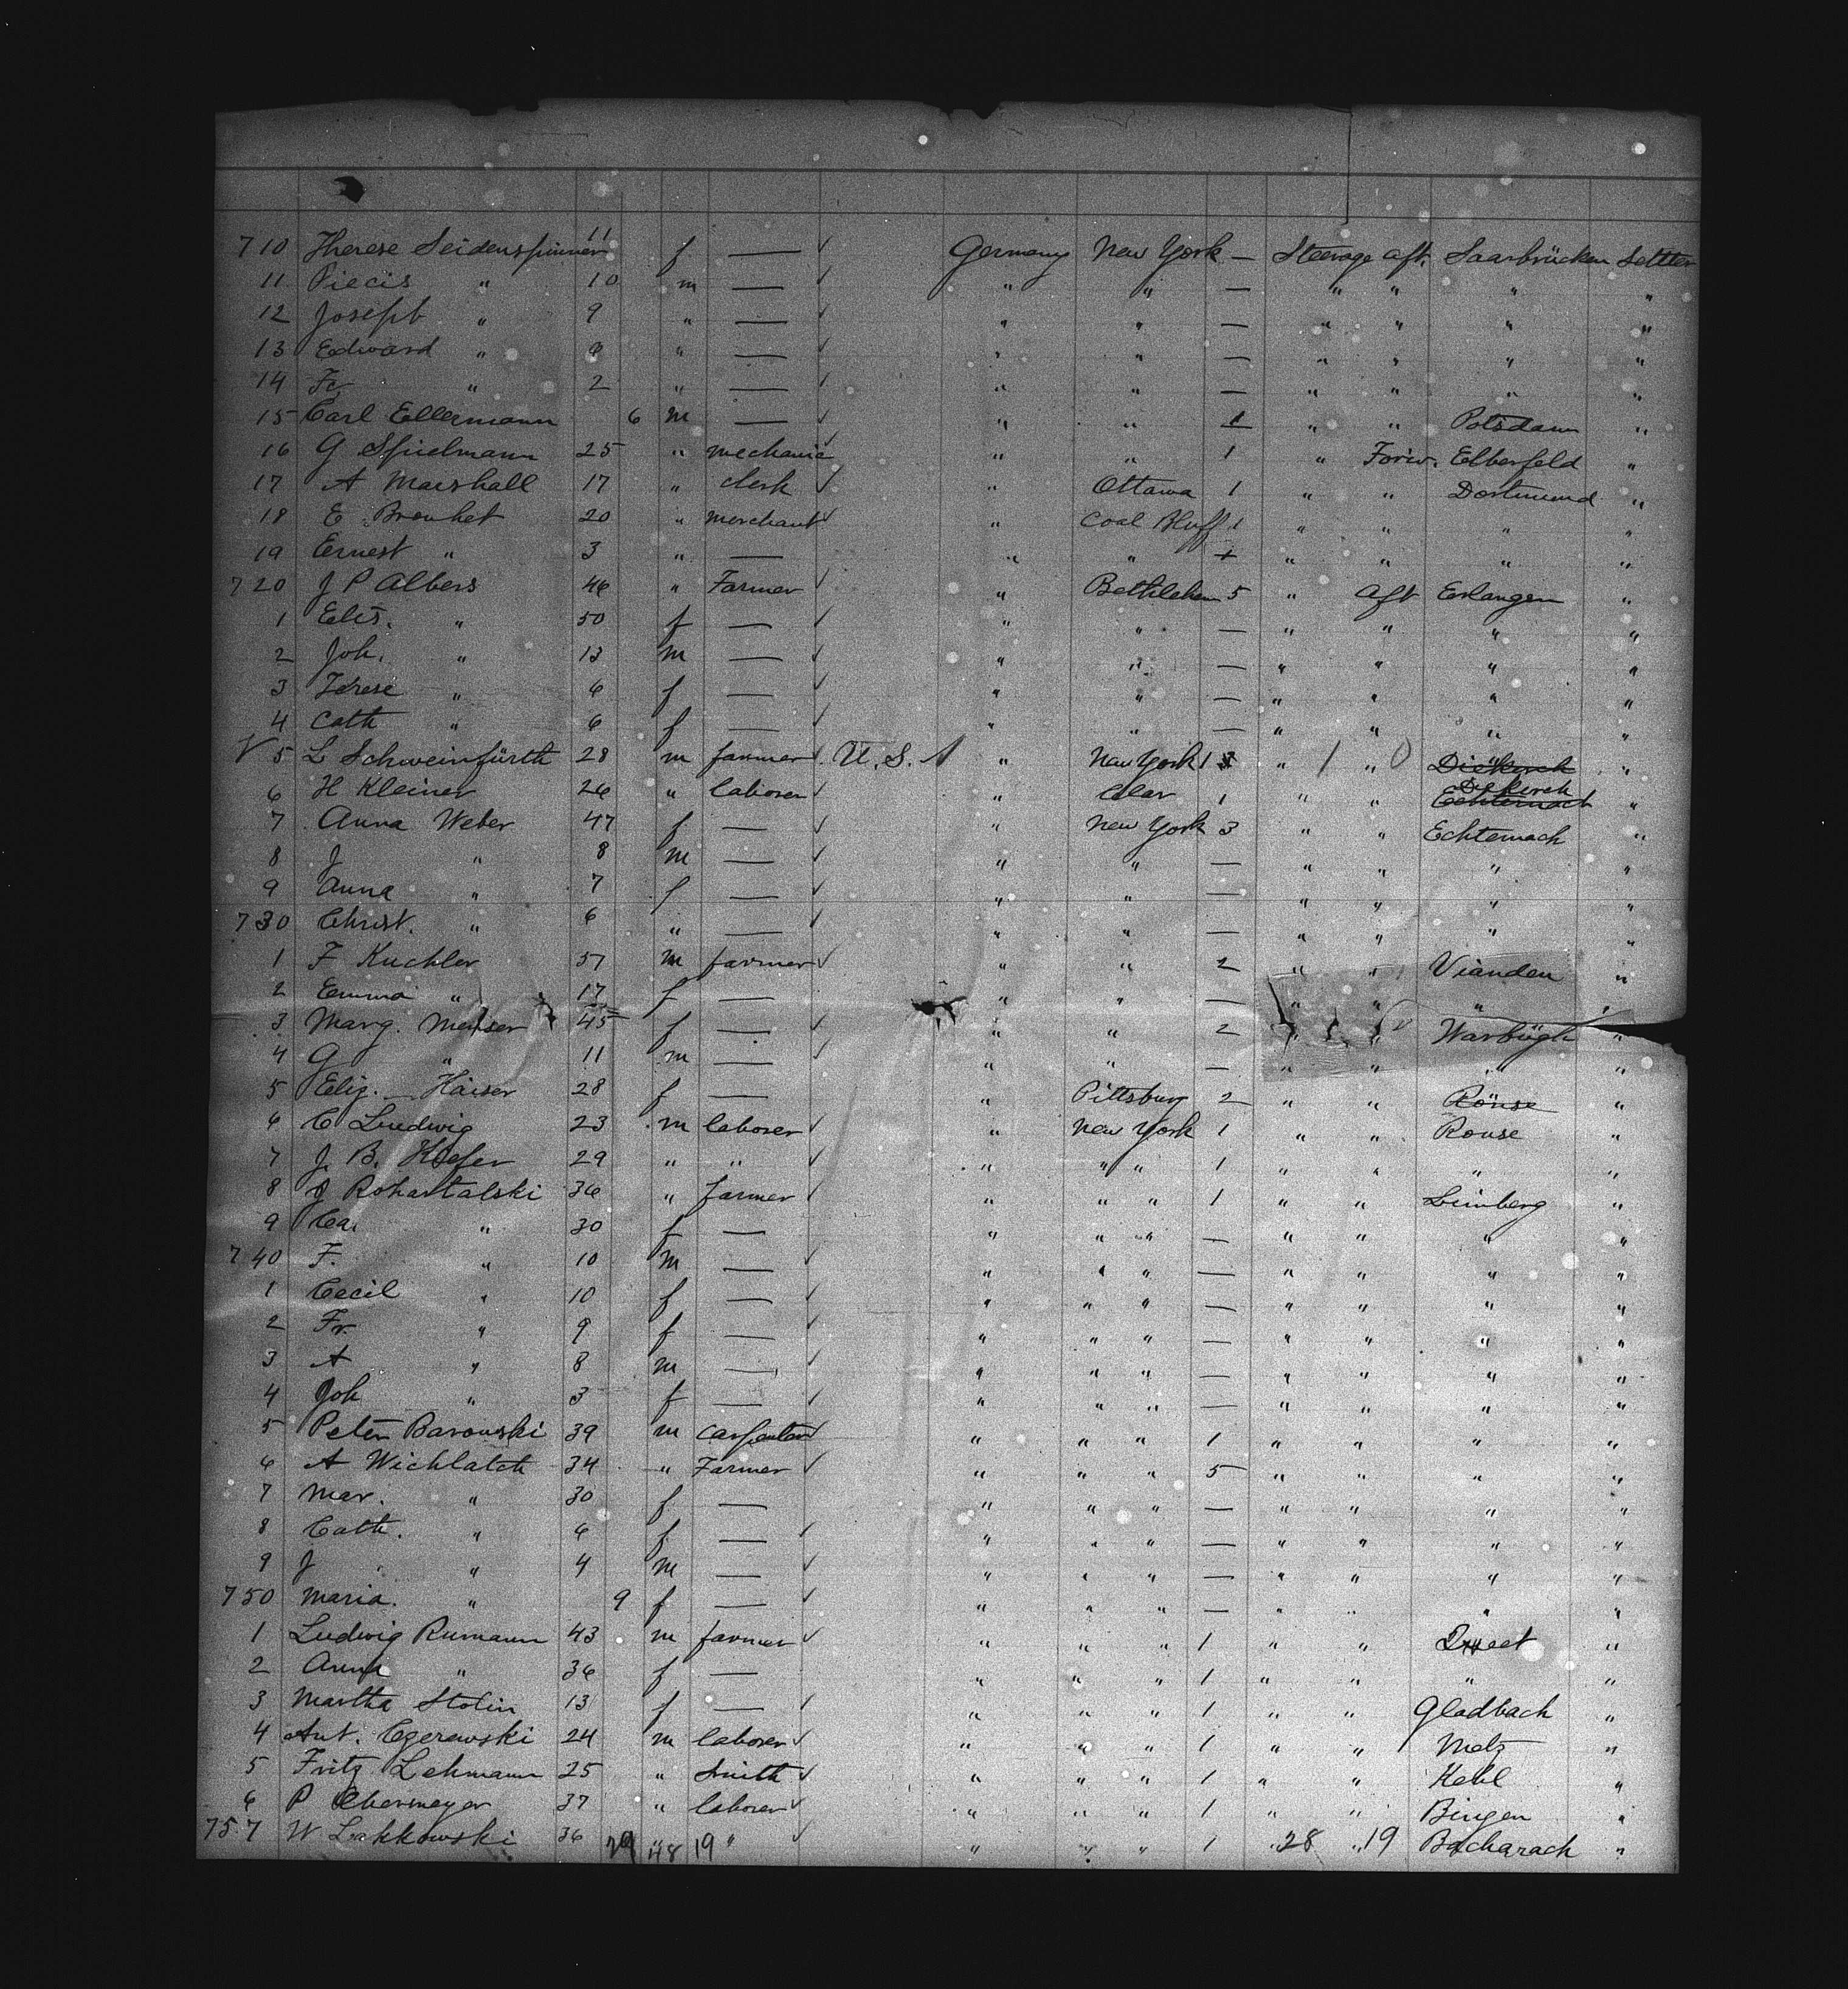 710 Therese Seidenspinner 11 f — ✓ Germany New York — Steerage aft. Saarbrücken Settler
11 Piecis " 10 m — ✓ " " — " " " "
12 Joseph " 9 " — ✓ " " — " " " "
13 Edward " " — ✓ " " — " " " "
14 Fr. " 2 " — ✓ " " — " " " "
15 Carl Ellermann 6 m — ✓ " " 1 " " Potsdam "
16 G Spielmann 25 " mechanic ✓ " " 1 " Forw. Elberfeld "
17 A Marshall 17 " clerk ✓ " Ottawa 1 " " Dortmund "
18 E Brouhet 20 " merchant ✓ " Coal Bluff 1 " " " "
19 Ernest " 3 " — " " + " " " "
720 J P Albers 46 " Farmer ✓ " Bethlehem 5 " aft Erlangen "
1 Elis. " 50 f — ✓ " " — " " " "
2 Joh. " 13 m — ✓ " " — " " " "
3 Terese " 6 f — ✓ " " — " " " "
4 Cath " 6 f — ✓ " " — " " " "
✓ 5 L Schweinfürth 28 m farmer ✓ U. S. " New York 1 " 1 " 0 Diekirch "
6 H Kleiner 26 " laborer ✓ " " 1 " " Echternach Diekirch "
7 Anna Weber 47 f — ✓ " New York 3 " " Echternach "
8 J " 8 m — ✓ " " — " " " "
9 Anna " 7 f — ✓ " " — " " " "
730 Christ. " 6 " — ✓ " " — " " " "
1 F Kuchler 57 m farmer ✓ " " 2 " " Vianden "
2 Emma " 17 f — " " — " " " "
3 Marg. 45 f — ✓ " " 2 " " "
4 G " 11 m — ✓ " " — " " " "
5 Elig. — Haiser 28 f — " Pittsburg 2 " " Rouse "
6 C Ludwig 23 m laborer ✓ " New York 1 " " Rouse "
7 J. B. Kiefer 29 " " ✓ " " " 1 " " " "
8 J Rohartalski 36 " farmer ✓ " " " 1 " " Limberg "
9 Ca. " 30 f — " " " — " " " "
740 F. " 10 m — ✓ " " " — " " " "
1 Cecil " 10 f — ✓ " " " — " " " "
2 Fr. " 9 f — ✓ " " " — " " " "
3 A " 8 m — ✓ " " " — " " " "
4 Joh " 3 f — ✓ " " " — " " " "
5 Peter Barowski 39 m carpenter ✓ " " " 1 " " " "
6 A Wichlatch 34 " Farmer ✓ " " " 5 " " " "
7 Mar. " 30 f — " " " — " " " "
8 Cath. " 6 f — ✓ " " " — " " " "
9 J " 4 m — ✓ " " " — " " " "
750 Maria. " 9 f — ✓ " " " — " " " "
1 Ludwig Rumann 43 m farmer ✓ " " " 1 " " "
2 Anna " 36 f — " " " 1 " " " "
3 Martha Stolin 13 f — ✓ " " " 1 " " Gladbach "
4 Ant. Czerawski 24 m laborer ✓ " " " 1 " " Metz "
5 Fritz Lehmann 25 " Smith ✓ " " " 1 " " Kehl "
6 P Obermeyer 37 " laborer ✓ " " " 1 " " Bingen "
757 W Lakkowski 36 29 " 48 19 " ✓ " " " 1 " 28 " 19 Bacharach "